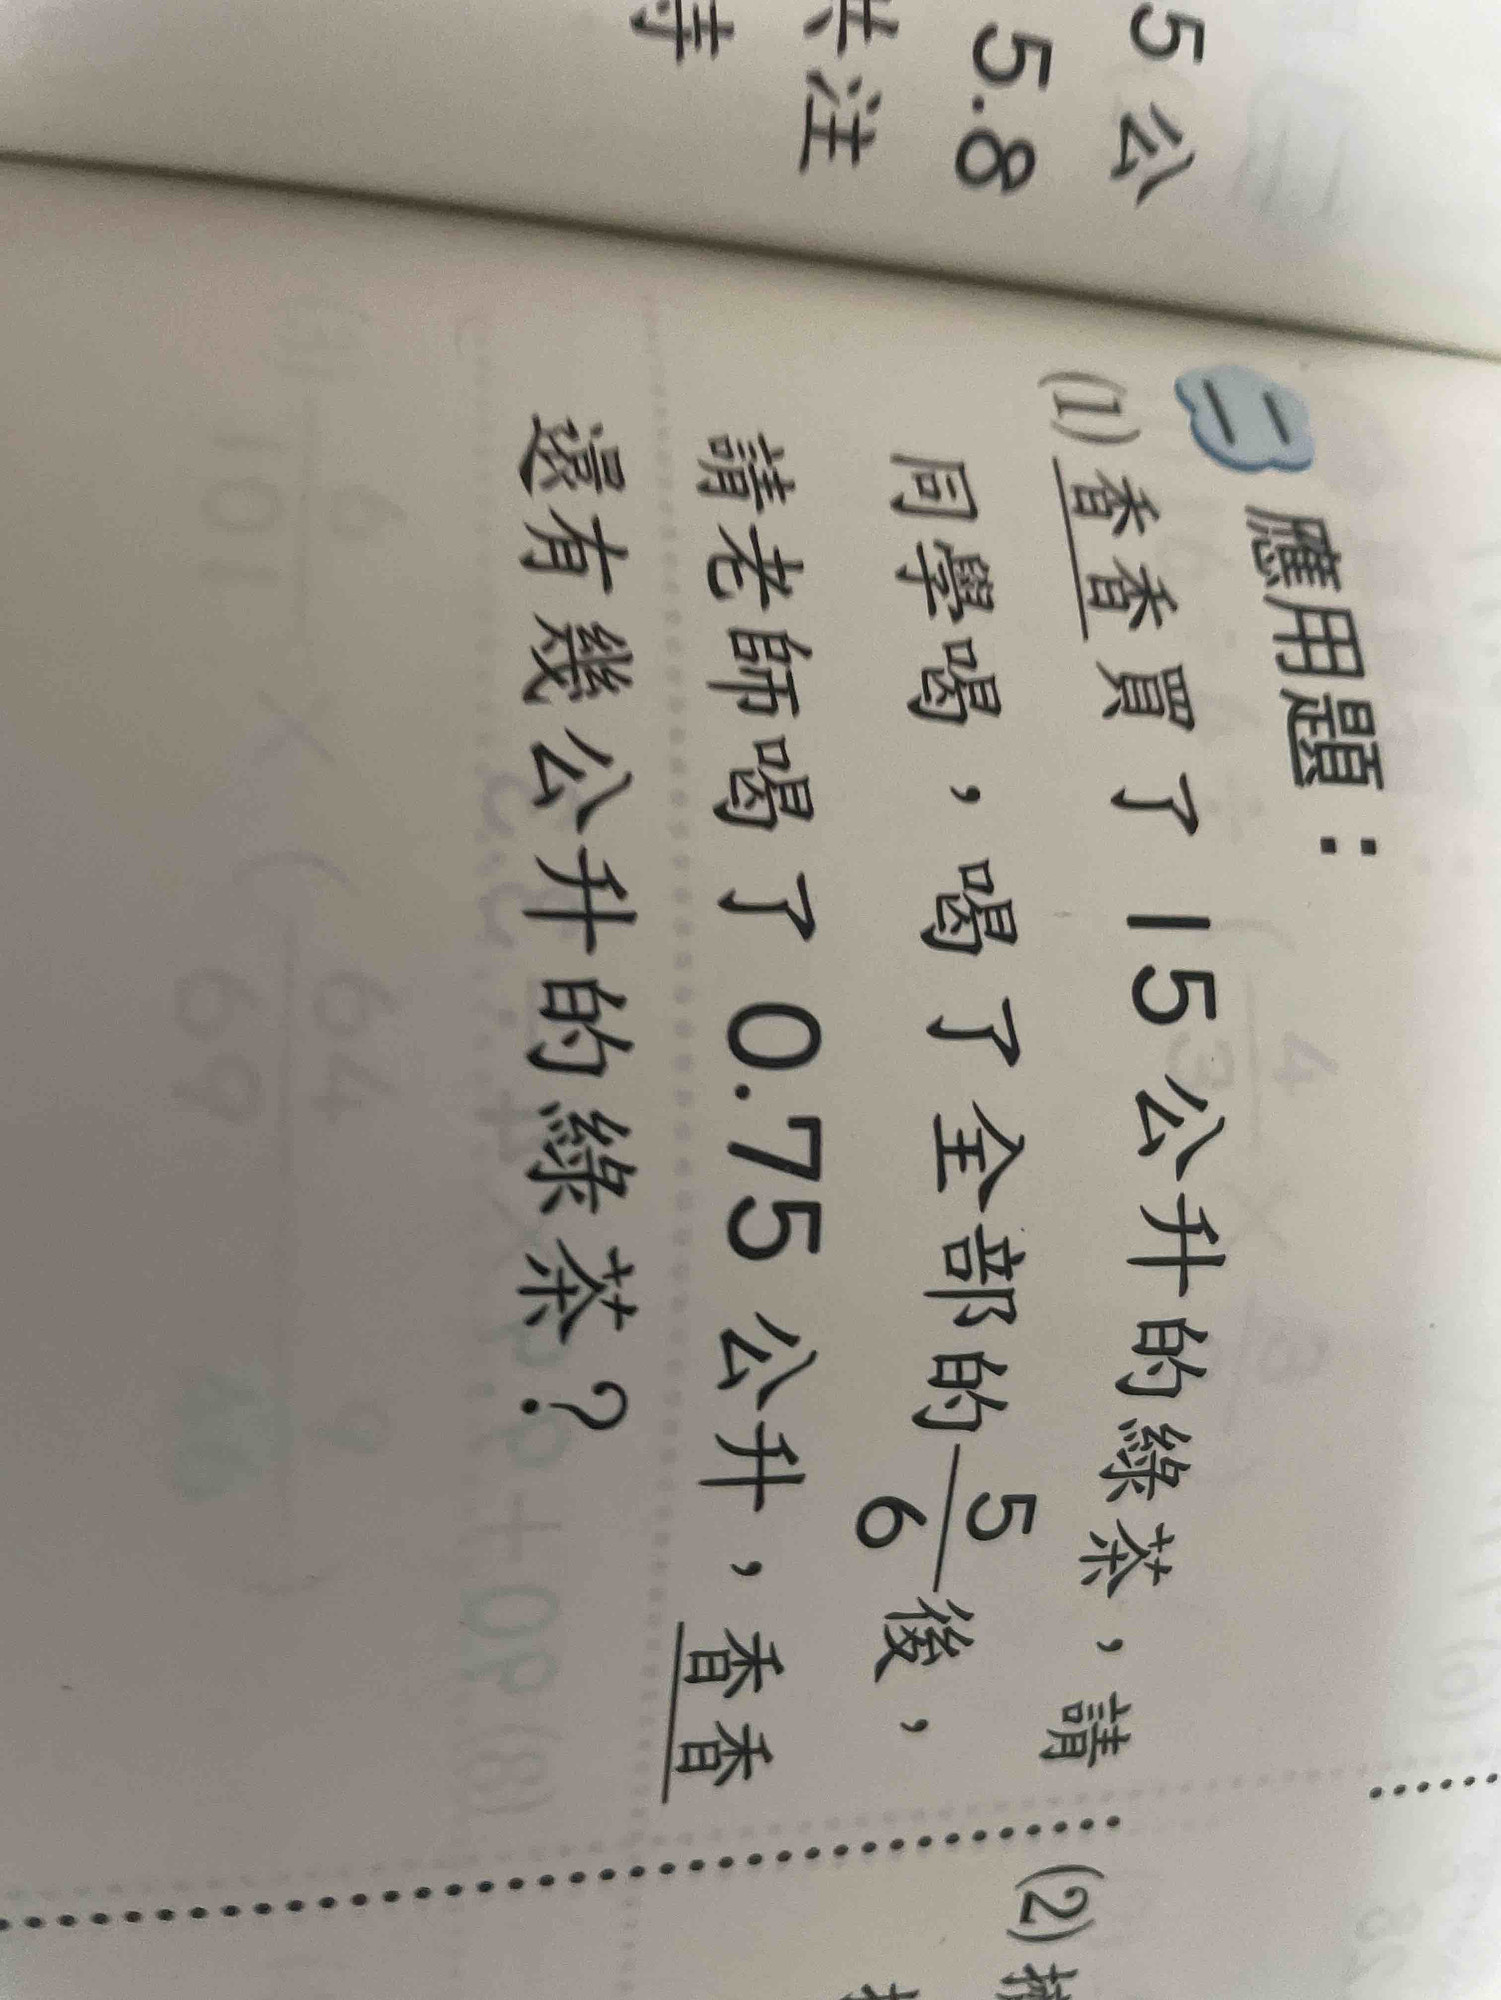 5公
5.8
共注
二 應用題：
(1)香香買了15公升的綠茶，請
同學喝，喝了全部的5/6後，
請老師喝了0.75公升，香香
還有幾公升的綠茶？
(2)